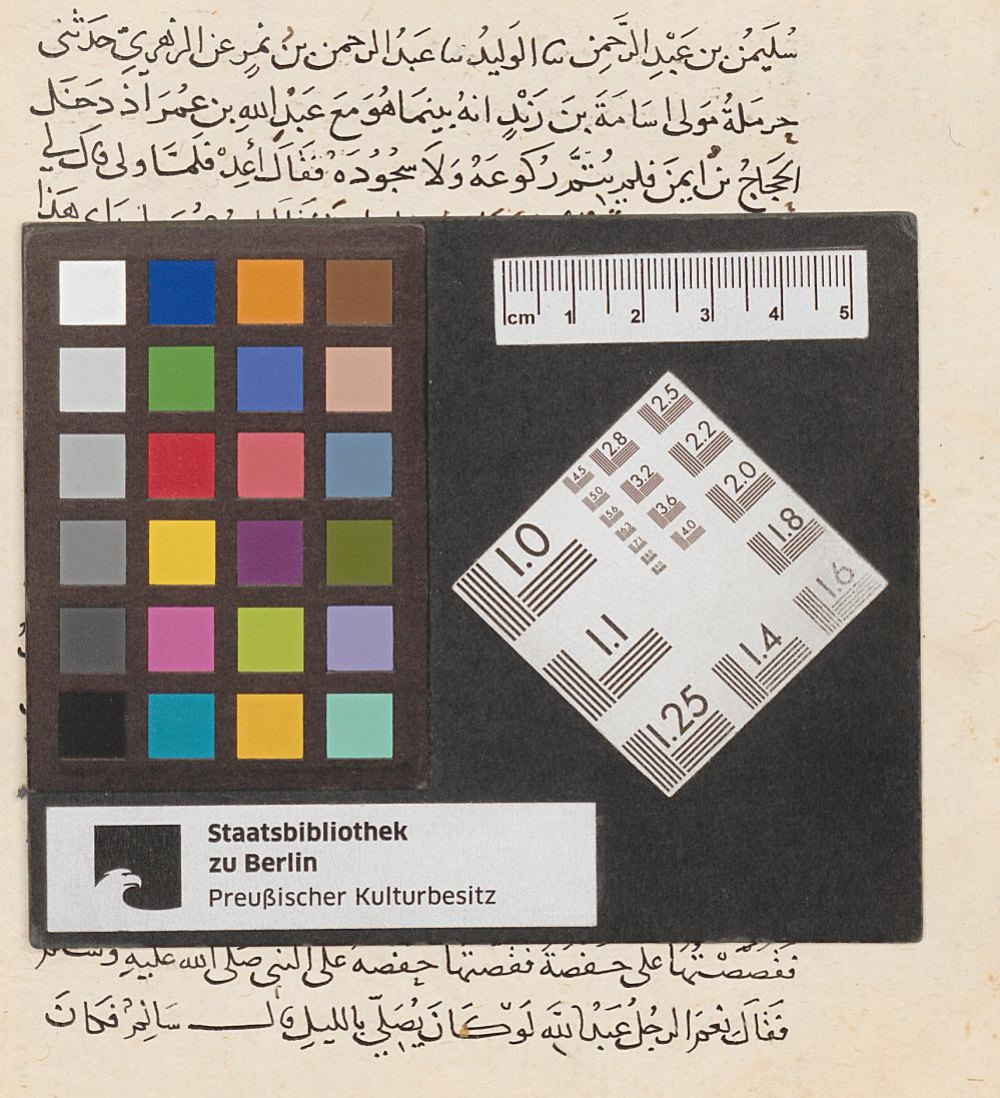 سُلَيمٰنُ بن عَبْدِ الرَّحمٰنِ سا الوَليدُ سا عَبدُ الرحمن بنُ نَمِرٍ عن الزهريّ حَدّثنى
حرمَلةُ مَولى اسَامَةَ بنَ زَيْدٍ انهُ بينمَا هُوَ مَعَ عَبْدِ اللهِ بن عُمَرَ اذ دَخَل
الحَجاجُ بنُ ايمنَ فلم يُتمَّ رُكوعَهُ وَلَا سجُودَهُ فَقَالَ اَعِدْ فلمَّا ولى قال لي
هَذا
cm 1 2 3 4 5
2.5
2.8 2.2
4.5 3.2 2.0
5.0 3.6 1.8
5.6 4.0 1.6
6.3
7.1
1.0
1.1 1.4
1.25
Staatsbibliothek
zu Berlin
Preußischer Kulturbesitz
فقَصَصْتُهَا على حَفصَةَ فقصّتها حفصة على النبي صلى الله عليه وسلم
فَقَالَ نِعمَ الرجُلُ عَبدُ اللهِ لَوْ كَانَ يُصَلّي بالليلِ قال سَالِمٌ فَكانَ